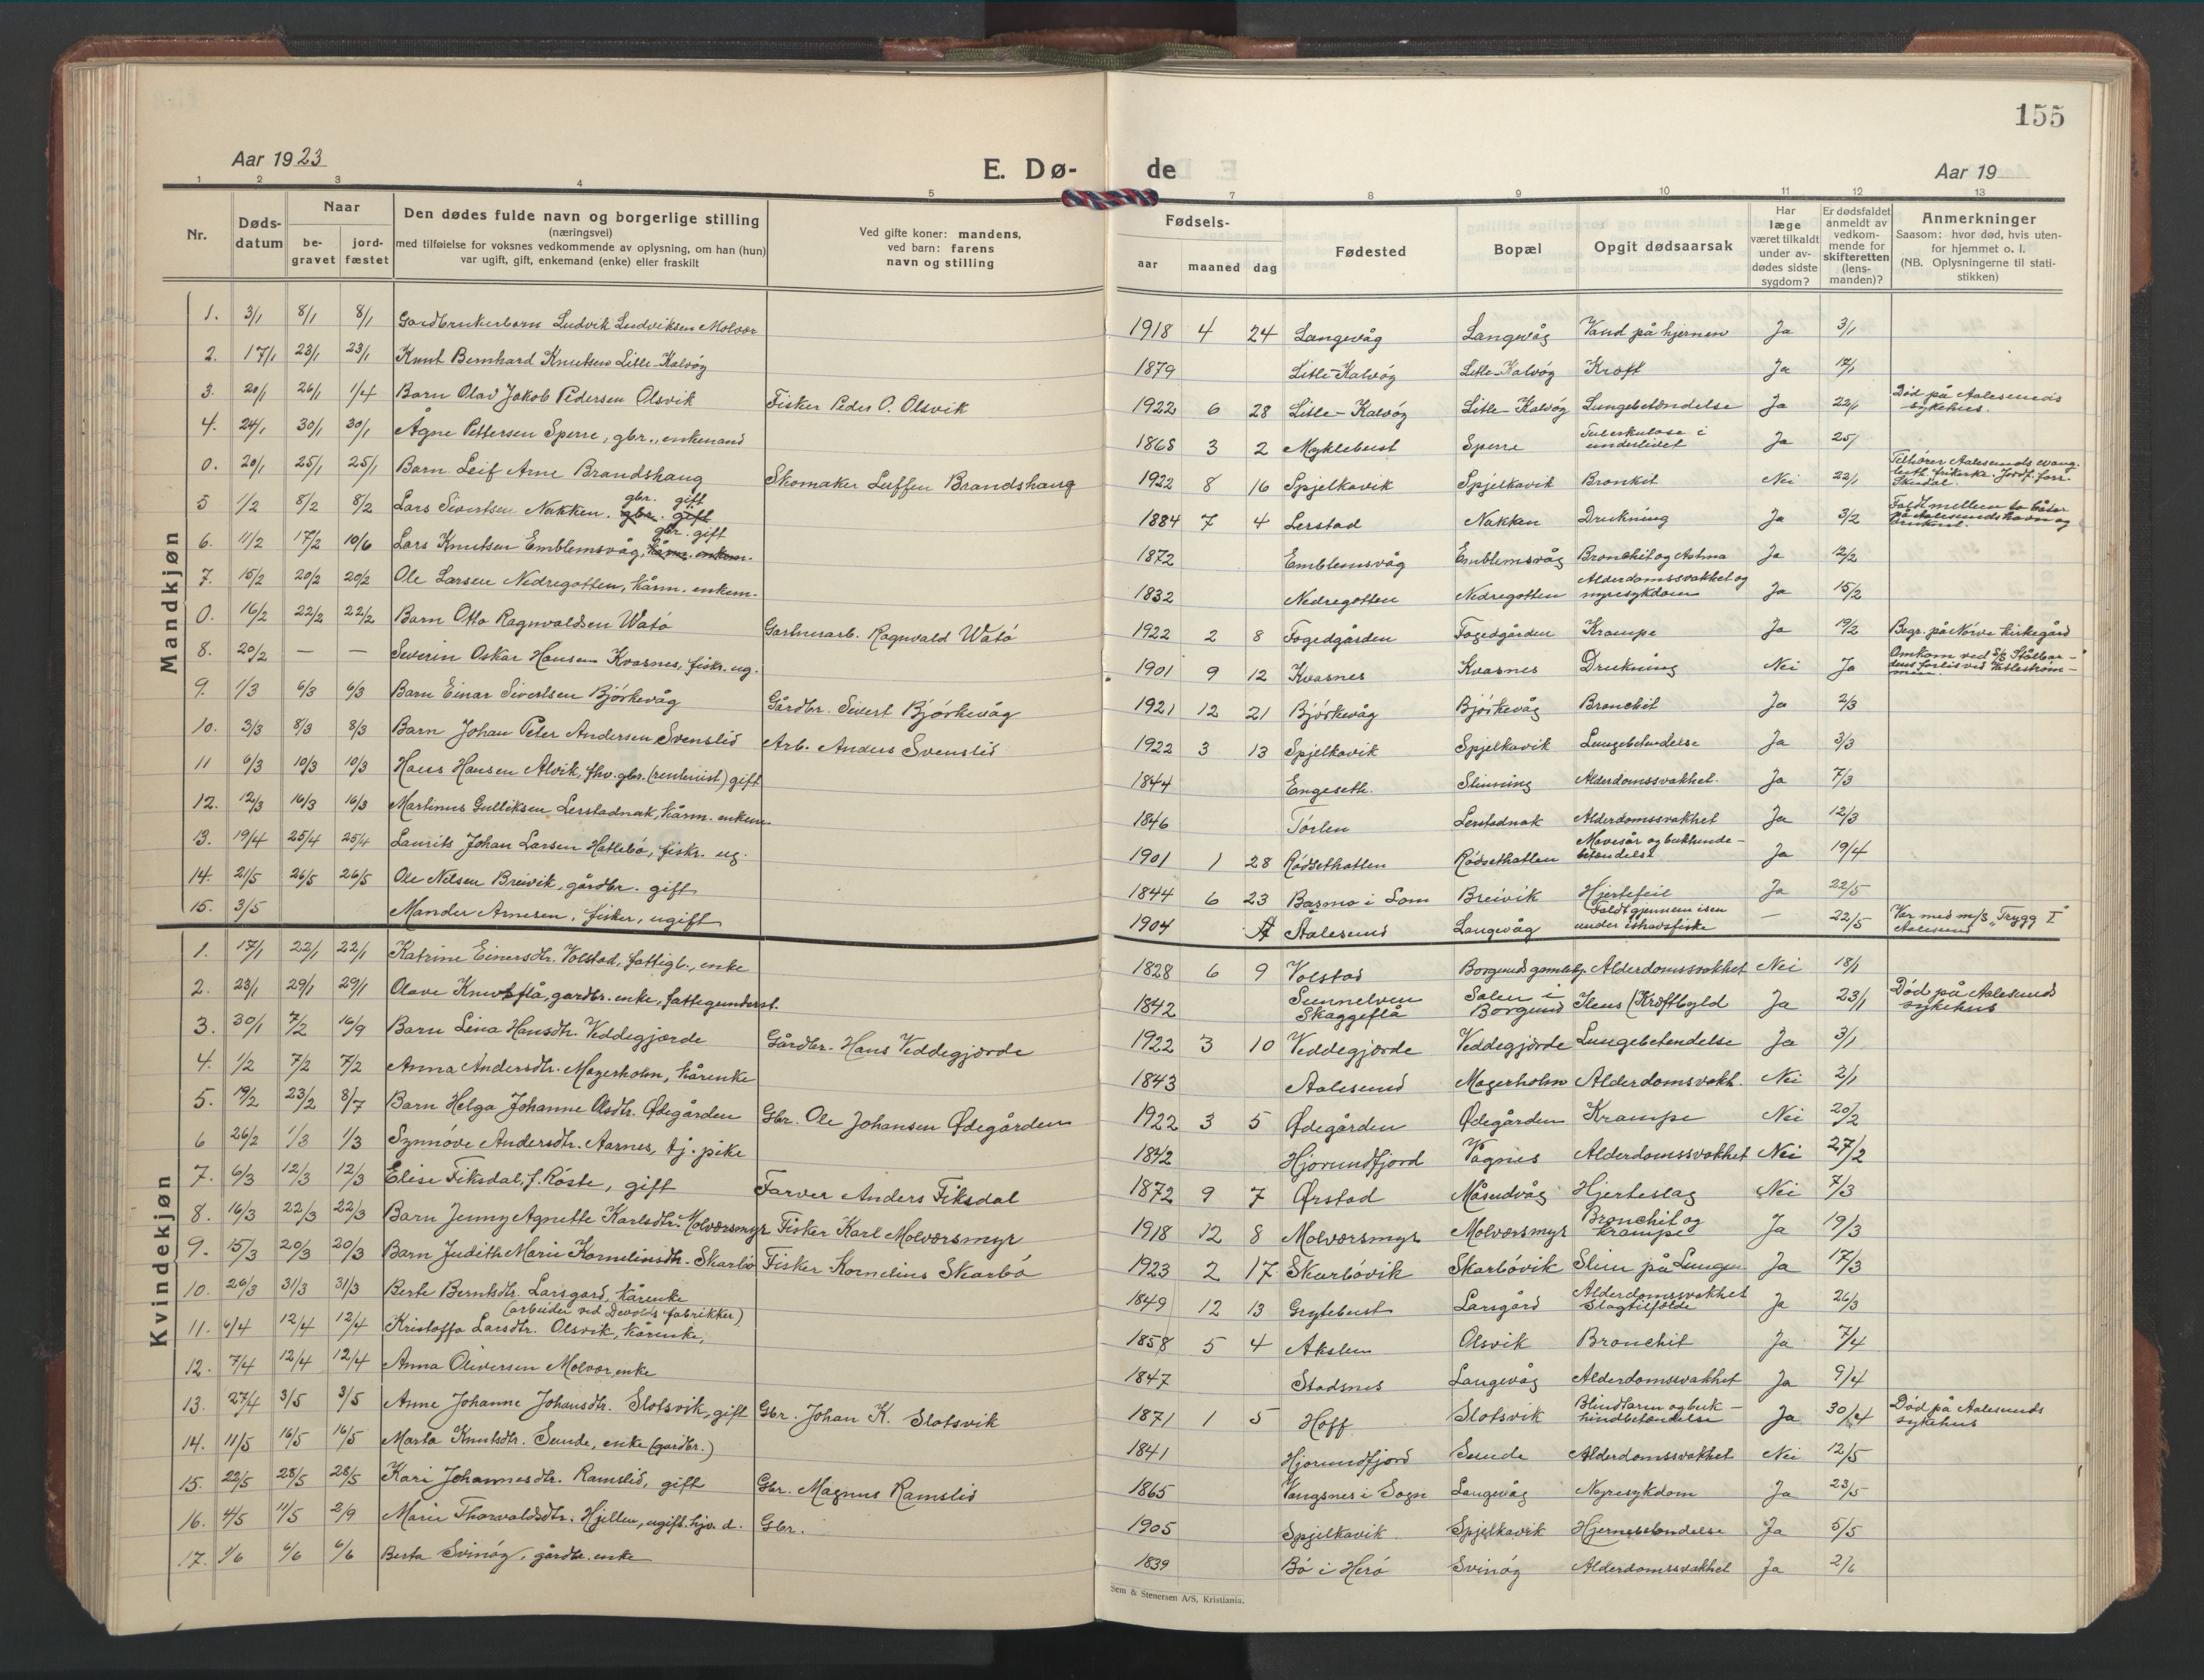 155
Aar 1923
E. Dø- de
Aar 19
1 2 3 4 5 7 8 9 10 11 12 13
Nr. Døds-datum Naar be-gravet jord-fæstet
Den dødes fulde navn og borgerlige stilling
(næringsvei)
med tilføielse for voksnes vedkommende av oplysning, om han (hun)
var ugift, gift, enkemand (enke) eller fraskilt
Ved gifte koner: mandens,
ved barn: farens
navn og stilling
Fødsels- aar maaned dag
Fødested
Bopæl
Opgit dødsaarsak
Har læge været tilkaldt under av-dødes sidste sygdom?
Er dødsfaldet anmeldt av vedkom-mende for skifteretten (lens-manden)?
Anmerkninger
Saasom: hvor død, hvis uten-
for hjemmet o. l.
(NB. Oplysningerne til stati-
stikken)
Mandkjøn
1. 3/1 8/1 8/1 Gardbrukerbarn Ludvik Ludviksen Molvær 1918 4 24 Langevåg Langevåg Vand på hjernen Ja 3/1
2. 17/1 23/1 23/1 Knut Bernhard Knutsen Litle-Kalvøy 1879 Litle-Kalvøy Litle-Kalvøy Kræft Ja 17/1
3. 20/1 26/1 1/4 Barn Olav Jakob Pedersen Olsvik Fisker Peder O. Olsvik 1922 6 28 Litle-Kalvøy Litle-Kalvøy Lungebetændelse Ja 22/1 Død på Aalesunds sykehus.
4. 24/1 30/1 30/1 Ågne Pettersen Sperre, gbr., enkemand 1865 3 2 Myklebust Sperre Tuberkulose i underlivet Ja 25/
0. 20/1 25/1 25/1 Barn Leif Arne Brandshaug Skomaker Leffen Brandshaug 1922 8 16 Spjelkavik Spjelkavik Bronkit Nei 22/1 Tilhører Aalesunds evang. luth. frikirke. Jordf. forr. Skrudal.
5 1/2 8/2 8/2 Lars Sivertsen Nakken. gbr. gift gbr. gift 1884 7 4 Lerstad Nakken Drukning Ja 3/2 Faldt mellem to båter på Aalesunds havn og druknet.
6. 11/2 17/2 10/6 Lars Knutsen Emblemsvåg, gbr. gift kårm. enkem. 1872 Emblemsvåg Emblemsvåg Bronchit og Astma Ja 12/2
7. 15/2 20/2 20/2 Ole Larsen Nedregotten, kårm. enkem. 1832 Nedregotten Nedregotten Alderdomssvakhet og nyresykdom Ja 15/2
0. 16/2 22/2 22/2 Barn Otto Ragnvaldsen Watø Gartnerarb. Ragnvald Watø 1922 2 8 Fogedgården Fogedgården Krampe Ja 19/2 Begr. på Nørve kirkegård
8. 20/2 — — Severin Oskar Hansen Kvasnes, fisk. ug. 1901 9 12 Kvasnes Kvasnes Drukning Nei Ja Omkom ved
9. 1/3 6/3 6/3 Barn Einar Sivertsen Bjørkevåg Gårdbr. Sivert Bjørkevåg 1921 12 21 Bjørkevåg Bjørkevåg Bronchit Ja 2/3
10. 3/3 8/3 8/3 Barn Johan Peter Andersen Svenslid Arb. Anders Svenslid 1922 3 13 Spjelkavik Spjelkavik Lungebetendelse Ja 3/3
11 6/3 10/3 10/3 Hans Hansen Alvik, fhv. gbr. (rentenist) gift 1844 Engeseth. Slinning Alderdomssvakhet. Ja 7/3
12. 12/3 16/3 16/3 Martinus Gulliksen Lerstadnak, kårm. enkem. 1846 Tørlen Lerstadnak Alderdomssvakhet Ja 12/3
13. 19/4 25/4 25/4 Laurits Johan Larsen Hatlebø, fiskr. ug. 1901 1 28 Rødsethatlen Rødsethatlen Mavesår og bukhinde-betendelse Ja 19/4
14. 21/5 26/5 26/5 Ole Nilsen Breivik, gårdbr. gift 1844 6 23 Bøsmo i Lom Breivik Hjertefeil Ja 22/5
15. 3/5 Mander Arnesen, fisker, ugift 1904 Aalesund Langevåg Faldt gjennem isen under ishavsfiske — 22/5 Var med m/s „Trygg I" Aalesund
Kvindekjøn
1. 17/1 22/1 22/1 Katrine Einersdtr. Volstad, fattigl., enke 1828 6 9 Volstad Borgund gamlehj. Alderdomssvakhet Nei 18/1
2. 23/1 29/1 29/1 Olave Knivsflå, gardbr. enke, fattigunderst. 1842 Sunnelven Skaggeflå Salen i Borgund Ileus (Kræftbyld Ja 23/1 Død på Aalesunds sykehus
3. 30/1 7/2 16/9 Barn Lina Hansdtr. Veddegjærde Gårdbr. Hans Veddegjærde 1922 3 10 Veddegjærde Veddegjerde Lungebetendelse Ja 3/1
4. 1/2 7/2 7/2 Anna Andersdtr. Magerholm, kårenke 1843 Aalesund Magerholm Alderdomsvakh. Nei 2/1
5. 19/2 23/2 8/7 Barn Helga Johanne Olsdtr. Ødegården Gbr. Ole Johansen Ødegården 1922 3 5 Ødegården Ødegården Krampe Nei 20/2
6 26/2 1/3 1/3 Synnøve Andersdtr. Aarnes, tj. pike 1842 Hjørundfjord Vågnes Alderdomssvakhet Nei 27/2
7. 6/3 12/3 12/3 Elise Fiksdal, f. Røste, gift Farver Anders Fiksdal 1872 9 7 Ørstad Måsudvåg Hjerteslag Nei 7/3
8. 16/3 22/3 22/3 Barn Jenny Agnethe Karlsdtr. Molværsmyr Fisker Karl Molværsmyr 1918 12 8 Molværsmyr Molværsmyr Bronchit og krampe Ja 19/3
9. 15/3 20/3 20/3 Barn Judith Marie Korneliusdtr. Skarbø Fisker Kornelius Skarbø 1923 2 17 Skarbøvik Skarbøvik Slim på Lungen Ja 17/3
10. 26/3 31/3 31/3 Berte Berntsdtr. Larsgard, kårenke 1849 12 13 Grytebust Larsgård Alderdomssvakhet Slagtilfælde Ja 26/3
(arbeider ved Devolds fabrikker)
11. 6/4 12/4 12/4 Kristoffa Larsdtr. Olsvik, kårenke, 1858 5 4 Akslen Olsvik Bronchit Ja 7/4
12. 7/4 12/4 12/4 Anna Oliversen Molvær, enke 1847 Stadsnes Langevåg Alderdomssvakhet Ja 9/4
13. 27/4 3/5 3/5 Anne Johanne Johansdtr. Slotsvik, gift Gbr. Johan K. Slotsvik 1871 1 5 Hoff Slotsvik Blindtarm og buk-hindbetændelse Ja 30/4 Død på Aalesunds sykehus
14. 11/5 16/5 16/5 Marta Knutsdtr. Sunde, enke (gardbr.) 1841 Hjørundfjord Sunde Alderdomssvakhet Nei 12/5
15. 22/5 28/5 28/5 Kari Johannesdtr. Ramslid, gift Gbr. Magnus Ramslid 1865 Vangsnes i Sogn Langevåg Nyresykdom Ja 23/5
16. 4/5 11/5 2/9 Marie Thorvaldsdtr. Hjellen, ugift. hjv. d. Gbr. 1905 Spjelkavik Spjelkavik Hjernebetendelse Ja 5/5
17. 1/6 6/6 6/6 Berta Svinøy, gårdbr. enke 1839 Bø i Herø Svinøy Alderdomssvakhet Ja 2/6
Sem & Stenersen A/S, Kristiania.